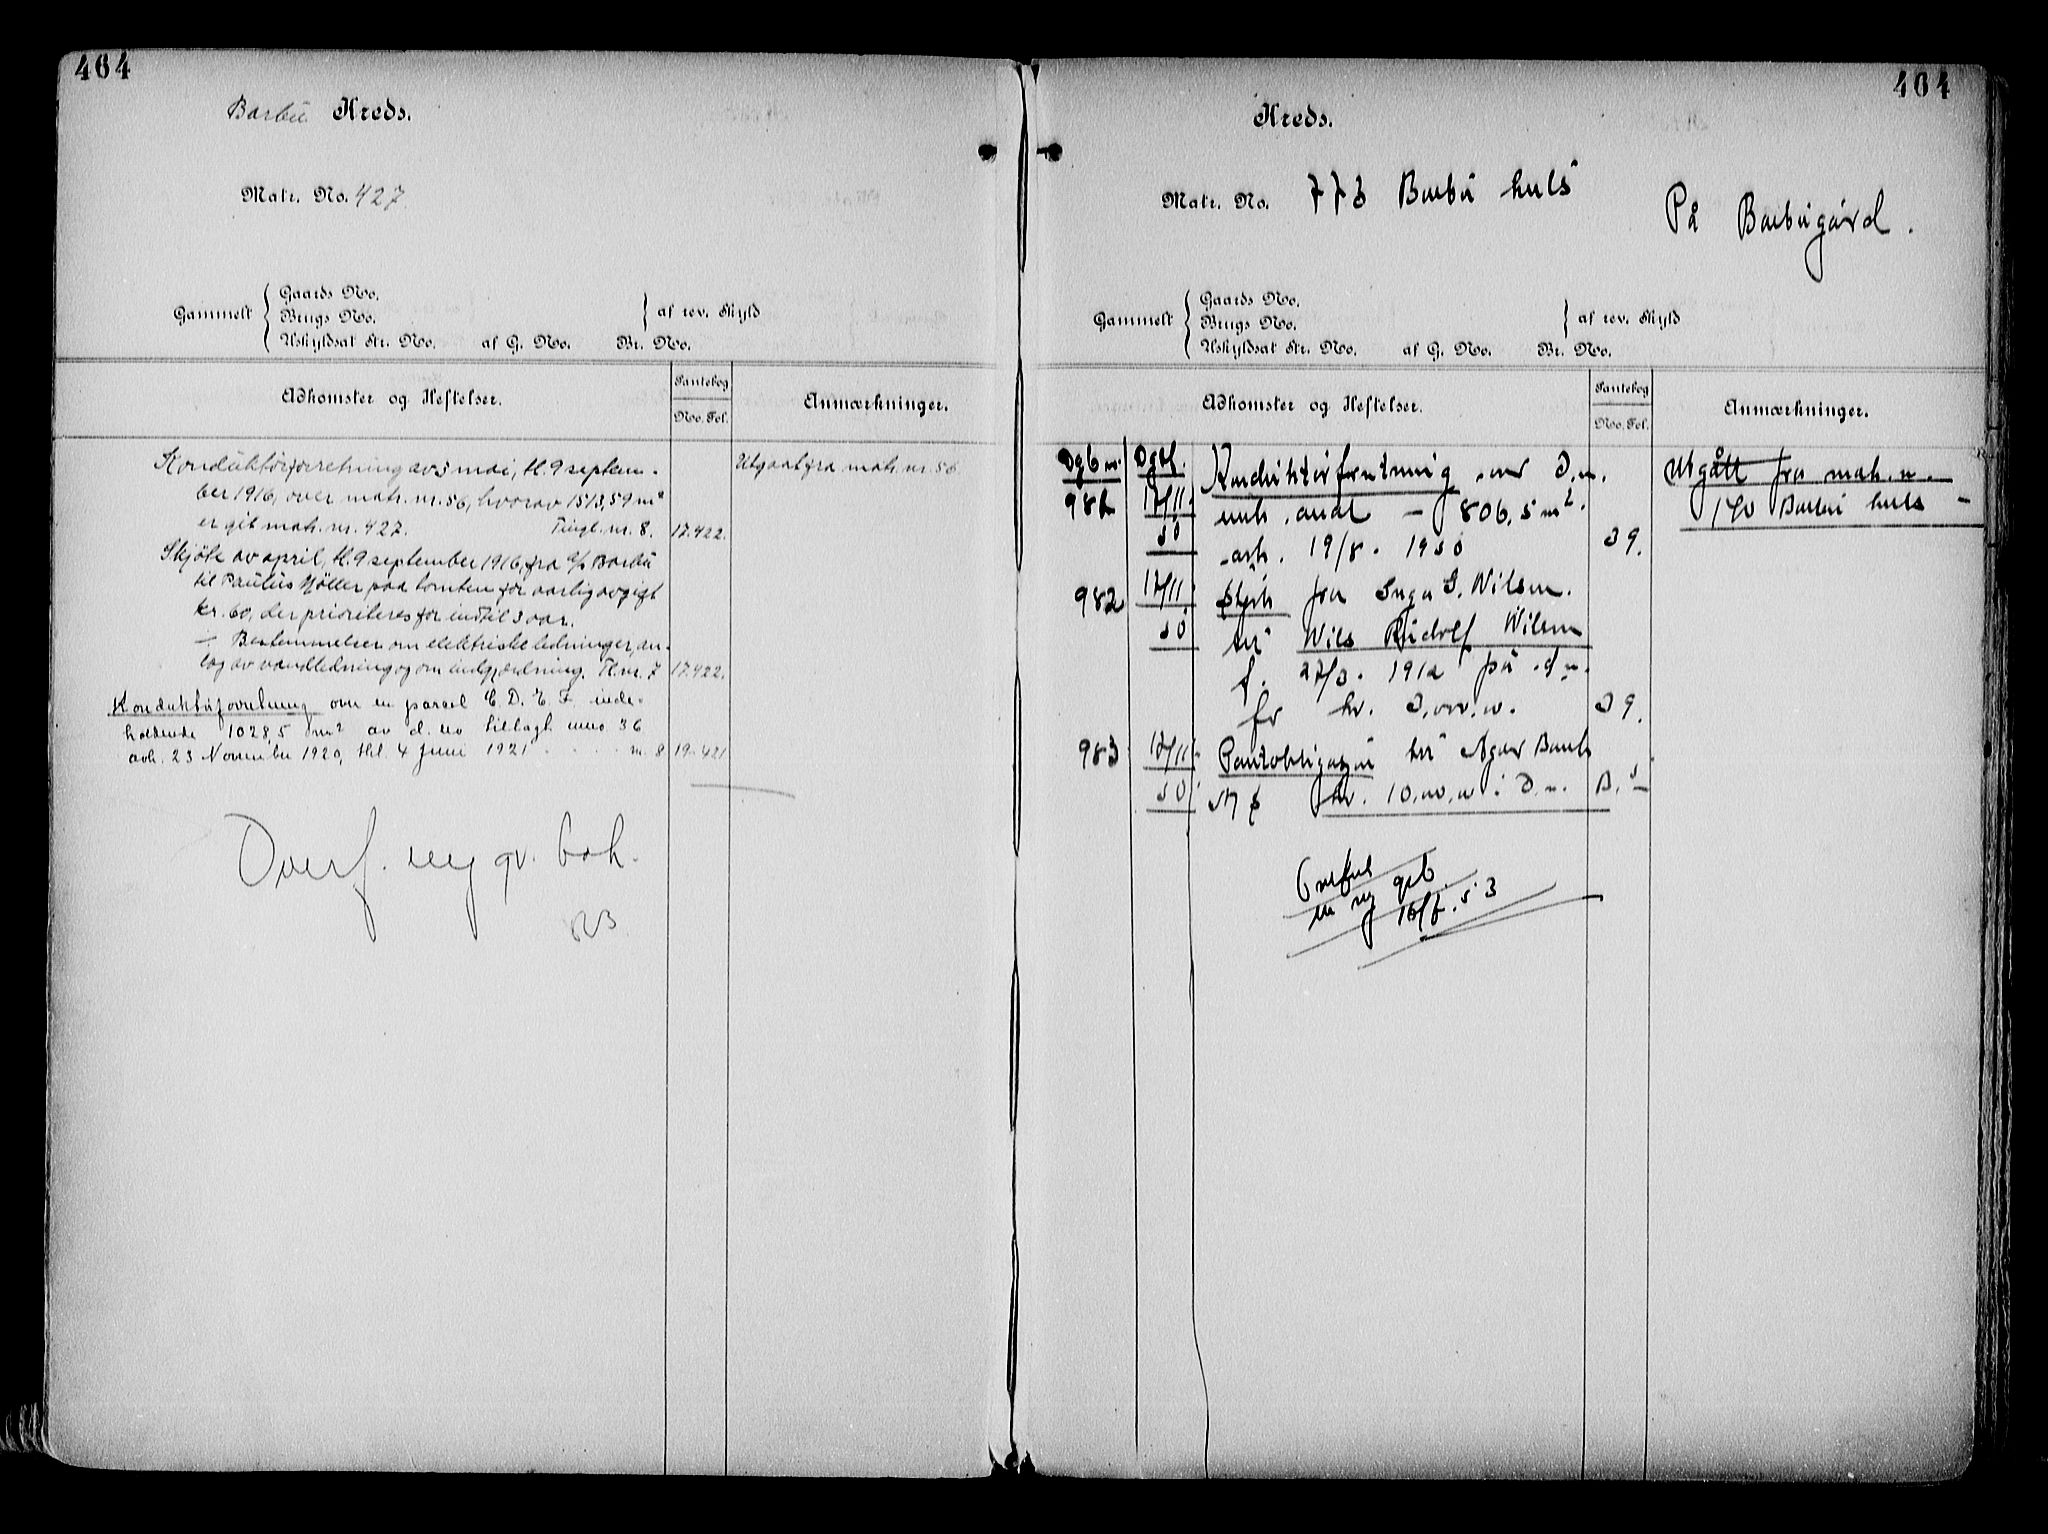 464
Barbu Kreds.
Matr. No. 427
Gammelt
Gaards No.
Brugs No.
Uskyldsat Str. No. af G. No. Br. No.
af rev. Skyld
Adkomster og Heftelser.
Pantebog
No. Fol.
Anmærkninger.
Konduktörforretning av 5 mai, tl. 9 septem-
ber 1916, over matr. nr. 56, hvorav 1513,59 m²
er git matr. nr. 427. Tingl. nr. 8. 17.422.
Utgaat fra matr. nr. 56
Skjöte av april, tl. 9 september 1916, fra A/S Barbu
til Paulus Möller paa tomten for aarlig avgift
kr. 60, der prioriteres for indtil 3 aar.
— Bestemmelser om elektriske ledninger, an-
læg av vandledning og om indgjærdning. Tl. nr. 7 17.422.
Konduktörforretning over en parcel C. D. E. F. inde-
holdende 1028,5 m² av d. no tillagt mno 36
avh. 23 November 1920, thl. 4 Juni 1921 n. 8 19.421
Overf. ny gr. bok.
464
Kreds.
Matr. No. 773 Barbu huls
På Barbugård.
Gammelt
Gaards No.
Brugs No.
Uskyldsat Str. No. af G. No. Br. No.
af rev. Skyld
Adkomster og Heftelser.
Pantebog
No. Fol.
Anmærkninger.
Dgb nr. Dgtl. Konduktörforretning over d.n.
17/11 50 areal – 806.5 m².
avh. 19/8. 1950 39.
Utgått fra matr. n.
170 Barbu huls –
982 17/11 50 Skjöte fra Inga G. Nilsen.
til Nils Rudolf Nilsen
f. 27/3. 1912 på d.n.
for kr. 39.
983 17/11 50 Pantobligasjon til Agder Bank
stor kr. 10.00.00 i d.n. B. 5
Overført
in ny grb.
53